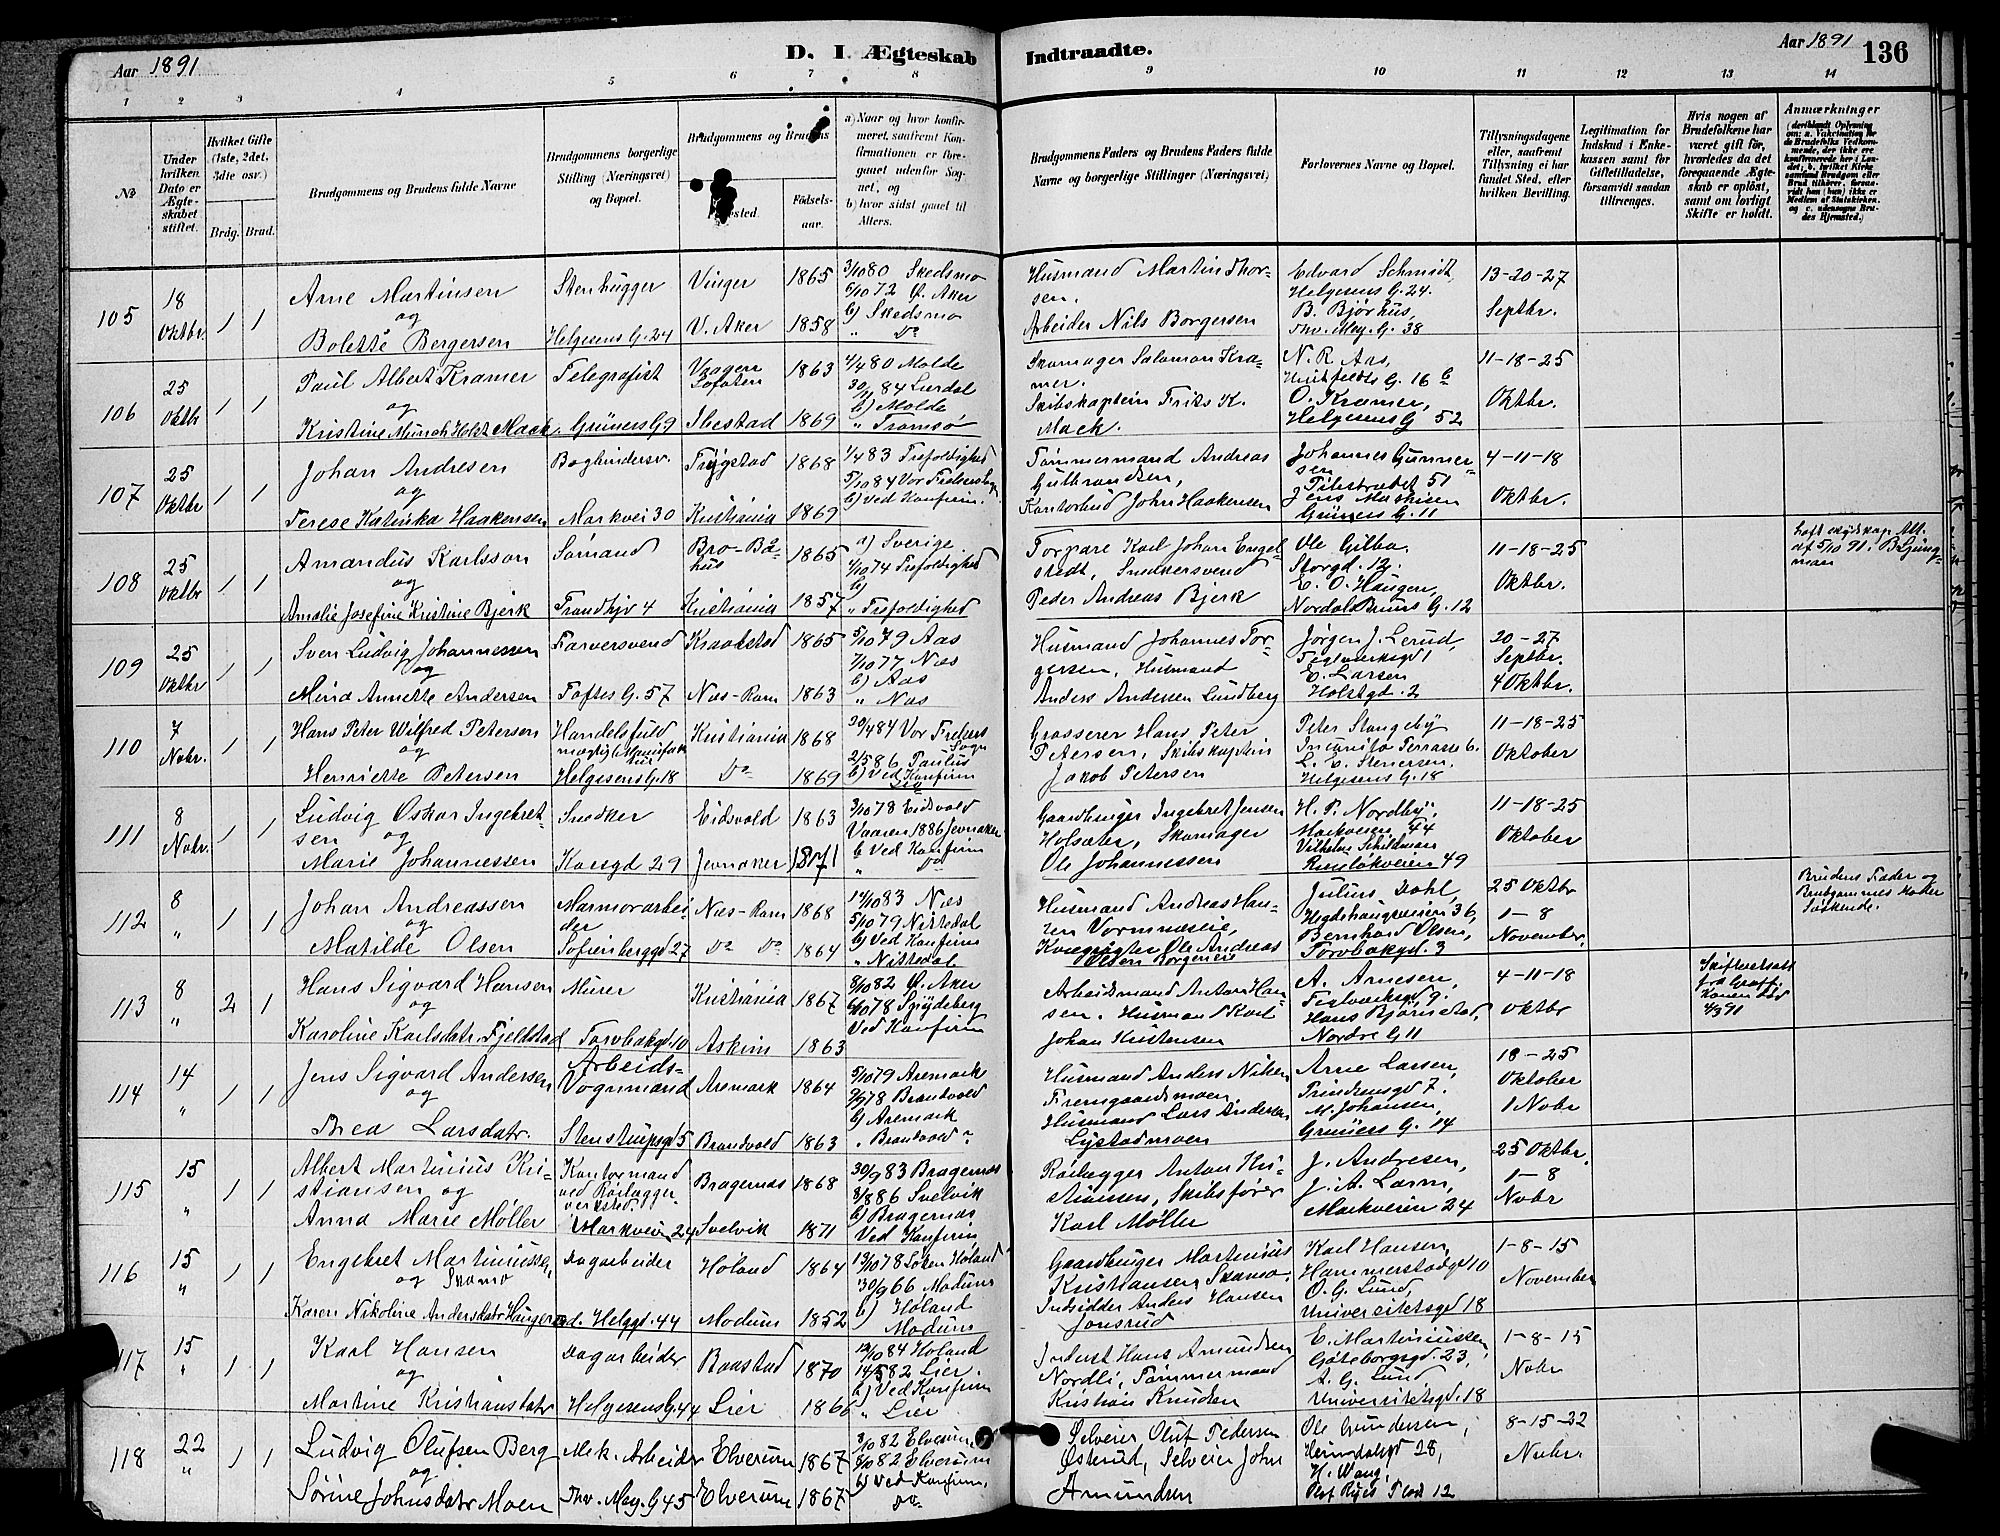 Aar 1891
D. I. Ægteskab
Indtraadte.
Aar 1891
136
1 2 3 4 5 6 7 8 9 10 11 12 13 14
No
Under hvilken Dato er Ægteskabet stiftet.
Hvilket Gifte (1ste, 2det, 3die osv.)
Brdg. Brud.
Brudgommens og Brudens fulde Navne
Brudgommens borgerlige Stilling (Næringsvei) og Bopæl.
Brudgommens og Brudens
Fødselsaar.
a) Naar og hvor konfirmeret, saafremt Konfirmationen er foregaaet udenfor Sognet, og
b) hvor sidst gaaet til Alters.
Brudgommens Faders og Brudens Faders fulde Navne og borgerlige Stillinger (Næringsvei)
Forlovernes Navne og Bopæl.
Tillysningsdagene eller, saafremt Tillysning ei har fundet Sted, efter hvilken Bevilling.
Legitimation for Indskud i Enkekassen samt for Giftetilladelse, forsaavidt saadan tiltrænges.
Hvis nogen af Brudefolkene har været gift før, hvorledes da det foregaaende Ægteskab er opløst, samt om lovligt Skifte er holdt.
Anmærkninger
105 18 Oktbr. 1 1
Arne Martinsen
og
Bolette Bergersen
Stenhugger
Helgesens G. 24
Vinger 1865
V. Aker 1858
3/10 80 Skedsmo
6/10 72 Ø. Aker
b) Skedsmo
" Do
Husmand Martin Thorsen.
Arbeider Nils Borgersen
Edvard Schmidt,
Helgesens G. 24.
B. Bjørhus,
Thv. Mey. G. 38
13-20-27
Septbr.
106 25 Oktbr 1 1
Paul Albert Kramer
og
Kristine Munch Holst Mack.
Telegrafist
Grüners G 9
Vaagen Lofoten 1863
Ibestad 1869
1/4 80 Molde
b) Molde
" Tromsø
Skomager Salomon Kramer.
Skibskaptein Frits K. Mack.
N. R. Aas,
Huitfeldts G. 16 b
O. Kramer,
Helgesens G 52
11-18-25
Oktbr.
107 25 Oktbr 1 1
Johan Andresen
og
Terese Katinka Haakensen
Bogbindersv.
Markvei 30
Trygstad 1868
Kristiania 1869
1/4 83 Trefoldighed
5/10 84 Vor Frelsers
b) Ved Konfirm.
Tømmermand Andreas Gulbrandsen,
Kontorbud John Haakensen
Johannes Gunnersen
Jens Mathisen
Grüners G. 11
4-11-18
Oktbr.
108 25 Oktbr 1 1
Amandus Karlsson
og
Amalie Josefine Kristine Bjerk
Sømand
Trondhjv 4
Bro-Båhus 1865
Kristiania 1857
a) Sverige
1/10 74 Trefoldighed
b)
" Trefoldighed
Torpare Karl Johan Engelstedt, Snedkersvend
Peder Andreas Bjerk
Ole Gilbo.
Storgd. 12.
E. O. Haugen,
Nordal Bruns G. 12
11-18-25
Oktbr.
109 25 Oktbr 1 1
Sven Ludvig Johannessen
og
Mina Annette Andersen
Farversvend
Toftes G. 57
Kraakstad 1865
Næs-Rom 1863
5/10 79 Aas
7/10 77 Næs
b) Aas
" Næs
Husmand Johannes Torgersen, Husmand
Anders Andersen Lundberg
Jørgen J. Lerud,
Teglverksgd 1
E. Larsen
Holstgd. 2
20-27
Septbr.
4 Oktbr.
110 7 Nobr. 1 1
Hans Peter Wilfred Petersen
og
Henriette Petersen
Handelsfuldmægtig
Helgesens G. 18
Kristiania 1868
Do 1869
30/4 84 Vor Frelsers Sogn
2/5 86 Paulus
b) Ved Konfirm
Grosserer Hans Peter Petersen, Skibskaptein
Jakob Petersen
Peter Stangeby
Incognito Terrasse 6.
L. E. Stenersen.
Helgesens G. 18
11-18-25
Oktober
111 8 Nobr. 1 1
Ludvig Oskar Ingebretsen
og
Marie Johannessen
Snedker
Korsgd 29
Eidsvold 1863
Jevnaker 1871
3/10 78 Eidsvold
Vaaren 1886 Jevnaker
b Ved Konfirm
" Do
Gaardbruger Ingebret Jensen Holsæter, Skomager
Ole Johannessen
H. P. Nordby,
Markveien 44
Vilhelm Schildman
Ruseløkveien 49
11-18-25
Oktober
112 8 " 1 1
Johan Andreassen
og
Matilde Olsen
Marmorarbeider
Sofienberggd 27
Næs-Rom 1868
Do Do 1864
14/10 83 Næs
5/10 79 Nittedal
b) Ved Konfirm
" Nittedal
Husmand Andreas Hansen Vormnæsie,
Kvægrøgter Ole Andreas Olsen Borgeneie
Julius Dahl,
Hegdehaugsveien 36,
Bernhard Olsen,
Torvbakgd. 3
25 Oktbr
1-8
November.
Brudens Fader og Brudgommes Moder Søskende.
113 8 " 2 1
Hans Sigvard Hansen
og
Karoline Karlsdatr. Fjeldstad
Murer
Torvbakgd. 10
Kristiania 1867
Askim 1863
8/10 82 Ø. Aker
6/10 78 Spydeberg
Ved Konfirm
Arbeidsmand Anton Hansen. Husmand Karl
Johan Kristensen
A. Arnesen,
Teglverksgd. 9.
Hans Bjørnstad,
Nordre G 11
4-11-18
Oktbr
114 14 " 1 1
Jens Sigvard Andersen
og
Thea Larsdatr.
Arbeids-Vognmand
Stenstrupsgd 5
Aremark 1864
Brandvold 1863
5/10 79 Aremark
Brandvold
b) Aremark
" Brandvold "
Husmand Anders Nilsen Fremgaardsmoen
Husmand Lars Andersen
Lystadmoen
Arne Larsen,
Trondhemsgd 7.
M. Johansen,
Grüners G. 14
18-25
Oktober
1 Nobr
115 15 " 1 1
Albert Martinius Kristiansen og
Anna Marie Møller
Kontormand ved Rørlæggerverksted.
Markveien 24
Bragernæs 1868
Svelvik 1871
30/9 83 Bragernæs
8/8 86 Svelvik
b) Bragernæs
Ved Konfirm
Rørlægger Anton Kristiansen, Skibsfører
Karl Møller
J. Andresen,
J. A. Larm,
Markveien 24
25 Oktbr.
1-8
Nobr
116 15 " 1 1
Engebret Martiniussen
og Skamo
Karen Nikoline Andersdatr Haugerud.
Dagarbeider
Helggd. 44
Høland 1864
Modum 1852
13/10 78 Søken Høland
30/9 66 Modum
b) Høland
Modum
Gaardbruger Martinius Kristiansen Skamo,
Indsidder Anders Hansen
Jonsrud
Karl Hansen,
Hammerstadgd 10
O. G. Lund,
Universitetsgd 18
1-8-15
November
117 15 " 1 1
Karl Hansen
og
Martine Kristiansdatr
Dagarbeider
Helgesens G. 44
Baastad 1870
Lier 1866
12/10 84 Høland
14/5 82 Lier
b) Ved Konfirm
" Lier
Inderst Hans Amundsen Nordli, Tømmermand
Kristian Knudsen
E. Martiniussen
Göteborggd 23,
A. G. Lund
Universitetsgd. 18
1-8-15
Nobr
118 22 " 1 1
Ludvig Olufsen Berg
og
Sørine Johnsdatr Moen
Mek. Arbeider
Thv. Mey. G 45
Elverum 1867
Elverum 1867
8/10 82 Elverum
8/10 82 Elverum
b) Ved Konfirm,
" Do
Selveier Oluf Pedersen Østerud, Selveier John
Amundsen
Ole Gundersen,
Heimdalsgd 28,
H. Wang,
Olaf Ryes Plads 12
8-15-22
Nobr.